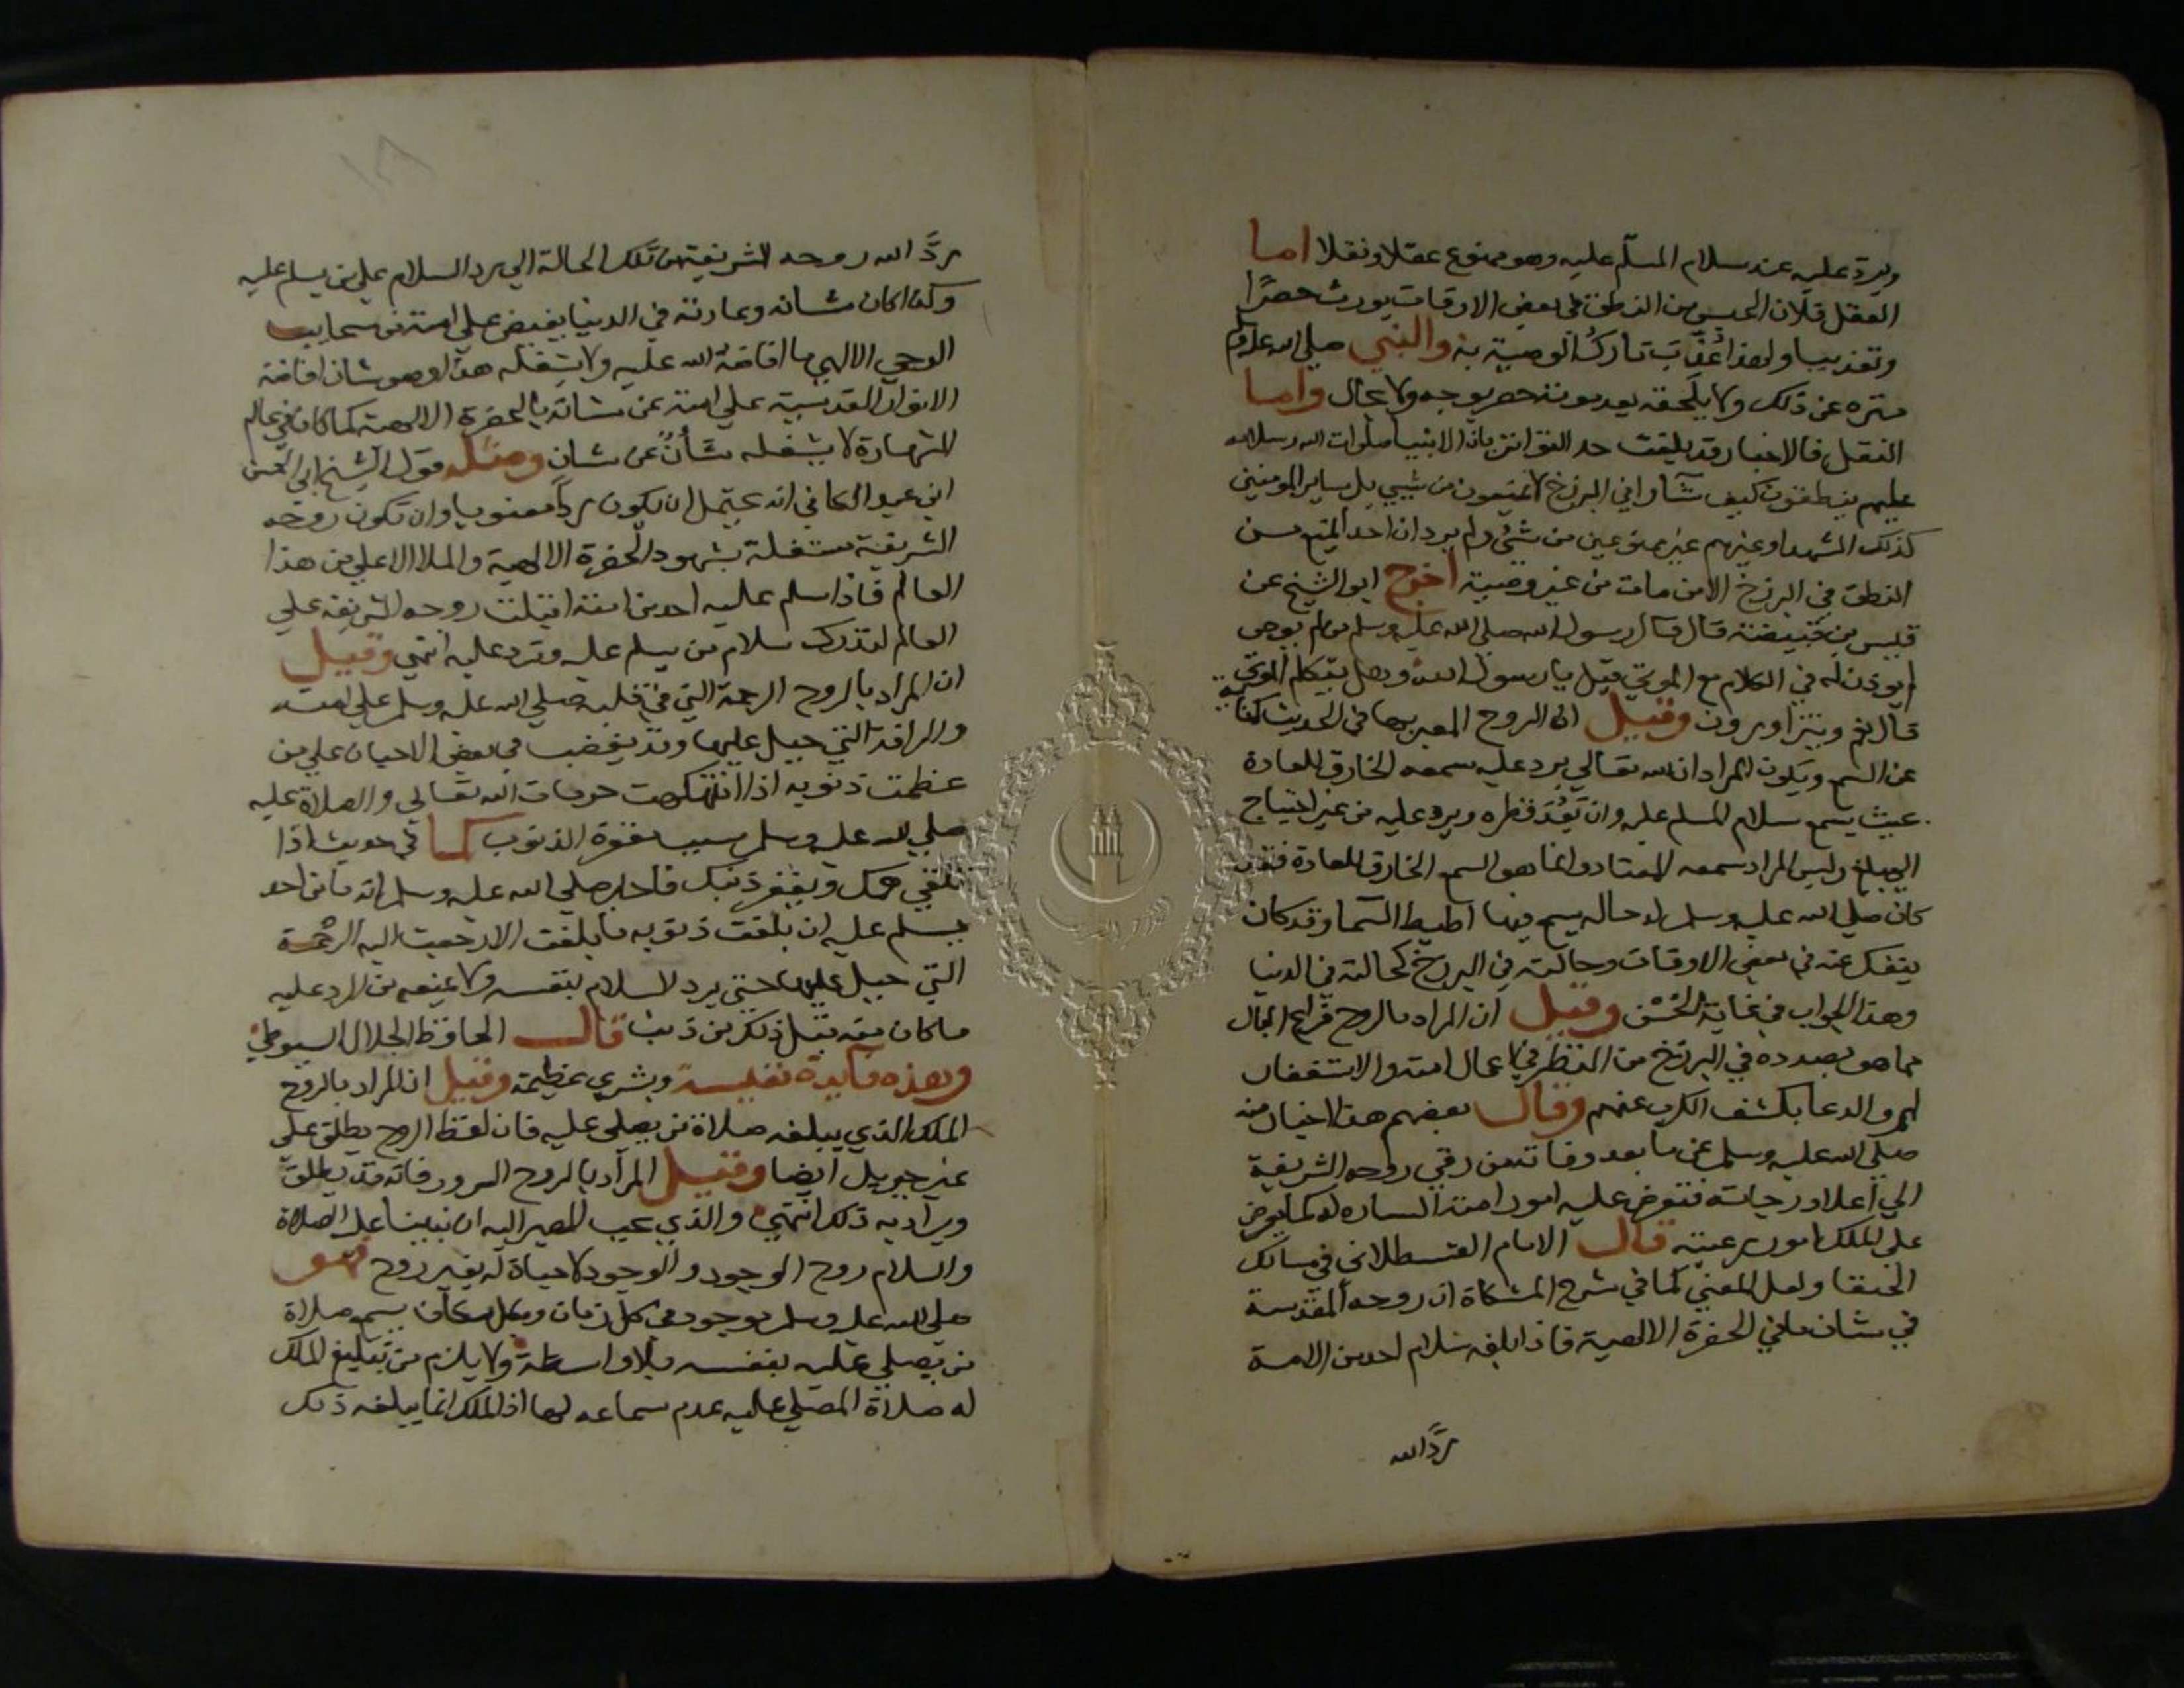 ويرد عليه عند سلام المسلّم عليه وهو ممنوع عقلا ونقلا اما
العقل فلان الحبس عن النطق في بعض الاوقات يورث حصرًا
وتعذيبا ولهذا عُذّب تارك الوصية به والنبي صلى الله عليه وسلم
منزه عن ذلك ولا يلحقه بعد موته حصر بوجه ولا بحال واما
النقل فالاخبار قد بلغت حد التواتر بان الانبيا صلوات الله وسلامه
عليهم ينطقون كيف شآوا في البرزخ لا يمنعون من شيي بل ساير المومنين
كذلك الشهدا وغيرهم غير ممنوعين من شئ ولم يرد ان احدا يمنع من
النطق في البرزخ الا من مات من غير وصية اخرج ابو الشيخ عن
قيس بن قبيصة قال قال رسول الله صلى الله عليه وسلم من لم يوص
لم يوذن له في الكلام مع الموتي قيل يا رسول الله وهل يتكلم الموتي
قال نعم ويتزاورون وقيل ان الروح المعبر بها في الحديث كناية
عن السمع ويكون المراد ان الله تعالي يرد عليه سمعه الخارق للعادة
بحيث يسمع سلام المسلم عليه وان بَعُدَ قطره ويرد عليه من غير احتياج
الي مبلغ وليس المراد سمعه المعتاد وانما هو السمع الخارق للعادة فقد
كان صلي الله عليه وسلم له حاله يسمع فيها اطيط السما وقد كان
ينفك عنه في بعض الاوقات وحالته في البرزخ كحالته في الدنيا
وهذا الجواب في غاية الحُسْن وقيل ان المراد بالروح فراغ البال
مما هو بصدده في البرزخ من النظر في اعمال امته والاستغفار
لهم والدعا بكشف الكرب عنهم وقال بعضهم هذا اخبار منه
صلي الله عليه وسلم عن ما بعد وفاته من رقي روحه الشريفة
الي أعلا درجاته فتعرض عليه امور امته الساره له كما يعرض
على الملك امور رعيته قال الامام القسطلاني في مسالك
الحنفا ولعل المعني كما في شرح المشكاة ان روحه المقدسة
في شان ما في الحضرة الالهية فاذا بلغه سلام احد من الامة
ردَّ الله
ردَّ الله روحه الشريفة من تلك الحالة الي رد السلام علي من يسلم عليه
وكذا كان شانه وعادته في الدنيا يفيض علي امته من سحايب
الوحي الالهي ما افاضهُ الله عليه ولا يشغله هذا وهو شان افاضة
الانوار القدسية علي امته عن شانه بالحضرة الالهية كما كان في عالم
الشهادة لا يشغله شأنٌ عن شان ومثله قول الشيخ ابي الحسن
ابن عبد الكافي انه يحتمل ان يكون ردا معنويا وان تكون روحه
الشريفة مشتغلة بشهود الحضرة الالهية والملا الاعلي عن هذا
العالم فاذا سلم عليه احد من امته اقبلت روحه الشريفة علي
العالم لتدرك سلام من يسلم عليه وترد عليه انتهي وقيل
ان المراد بالروح الرحمة التي في قلبه صلي الله عليه وسلم علي امته
والرافة التي جبل عليها وقد يغضب في بعض الاحيان علي من
عظمت ذنوبه اذا انتهكت حرمات الله تعالي والصلاة عليه
صلي الله عليه وسلم سبب مغفرة الذنوب كما في حديث اذا
تكفي همك ويغفر ذنبك فاخبر صلي الله عليه وسلم انه ما من احد
يسلم عليه ان بلغت ذنوبه ما بلغت الا رجعت اليه الرحمة
التي جبل عليها حتي يرد السلام بنفسه ولا يمنعه من الرد عليه
ما كان منه قبل ذلك من ذنب قال الحافظ الجلال السيوطي
وهذه فآيدة نفيسة وبشري عظيمة وقيل ان المراد بالروح
الملك الذي يبلغه صلاة من يصلي عليه فان لفظ الروح يطلق علي
غير جبريل ايضا وقيل المراد بالروح السرور فانه قد يطلق
ويراد به ذلك انتهي والذي يجب المصير اليه ان نبينا عليه الصلاة
والسلام روح الوجود والوجود لا حياة له بغير روح فهو
صلي الله عليه وسلم موجود في كل زمان وبكل مكان يسمع صلاة
من يصلي عليه بنفسه بلا واسطة ولا يلزم من تبليغ الملك
له صلاة المصلي عليه عدم سماعه لها اذ الملك انما يبلغه ذلك